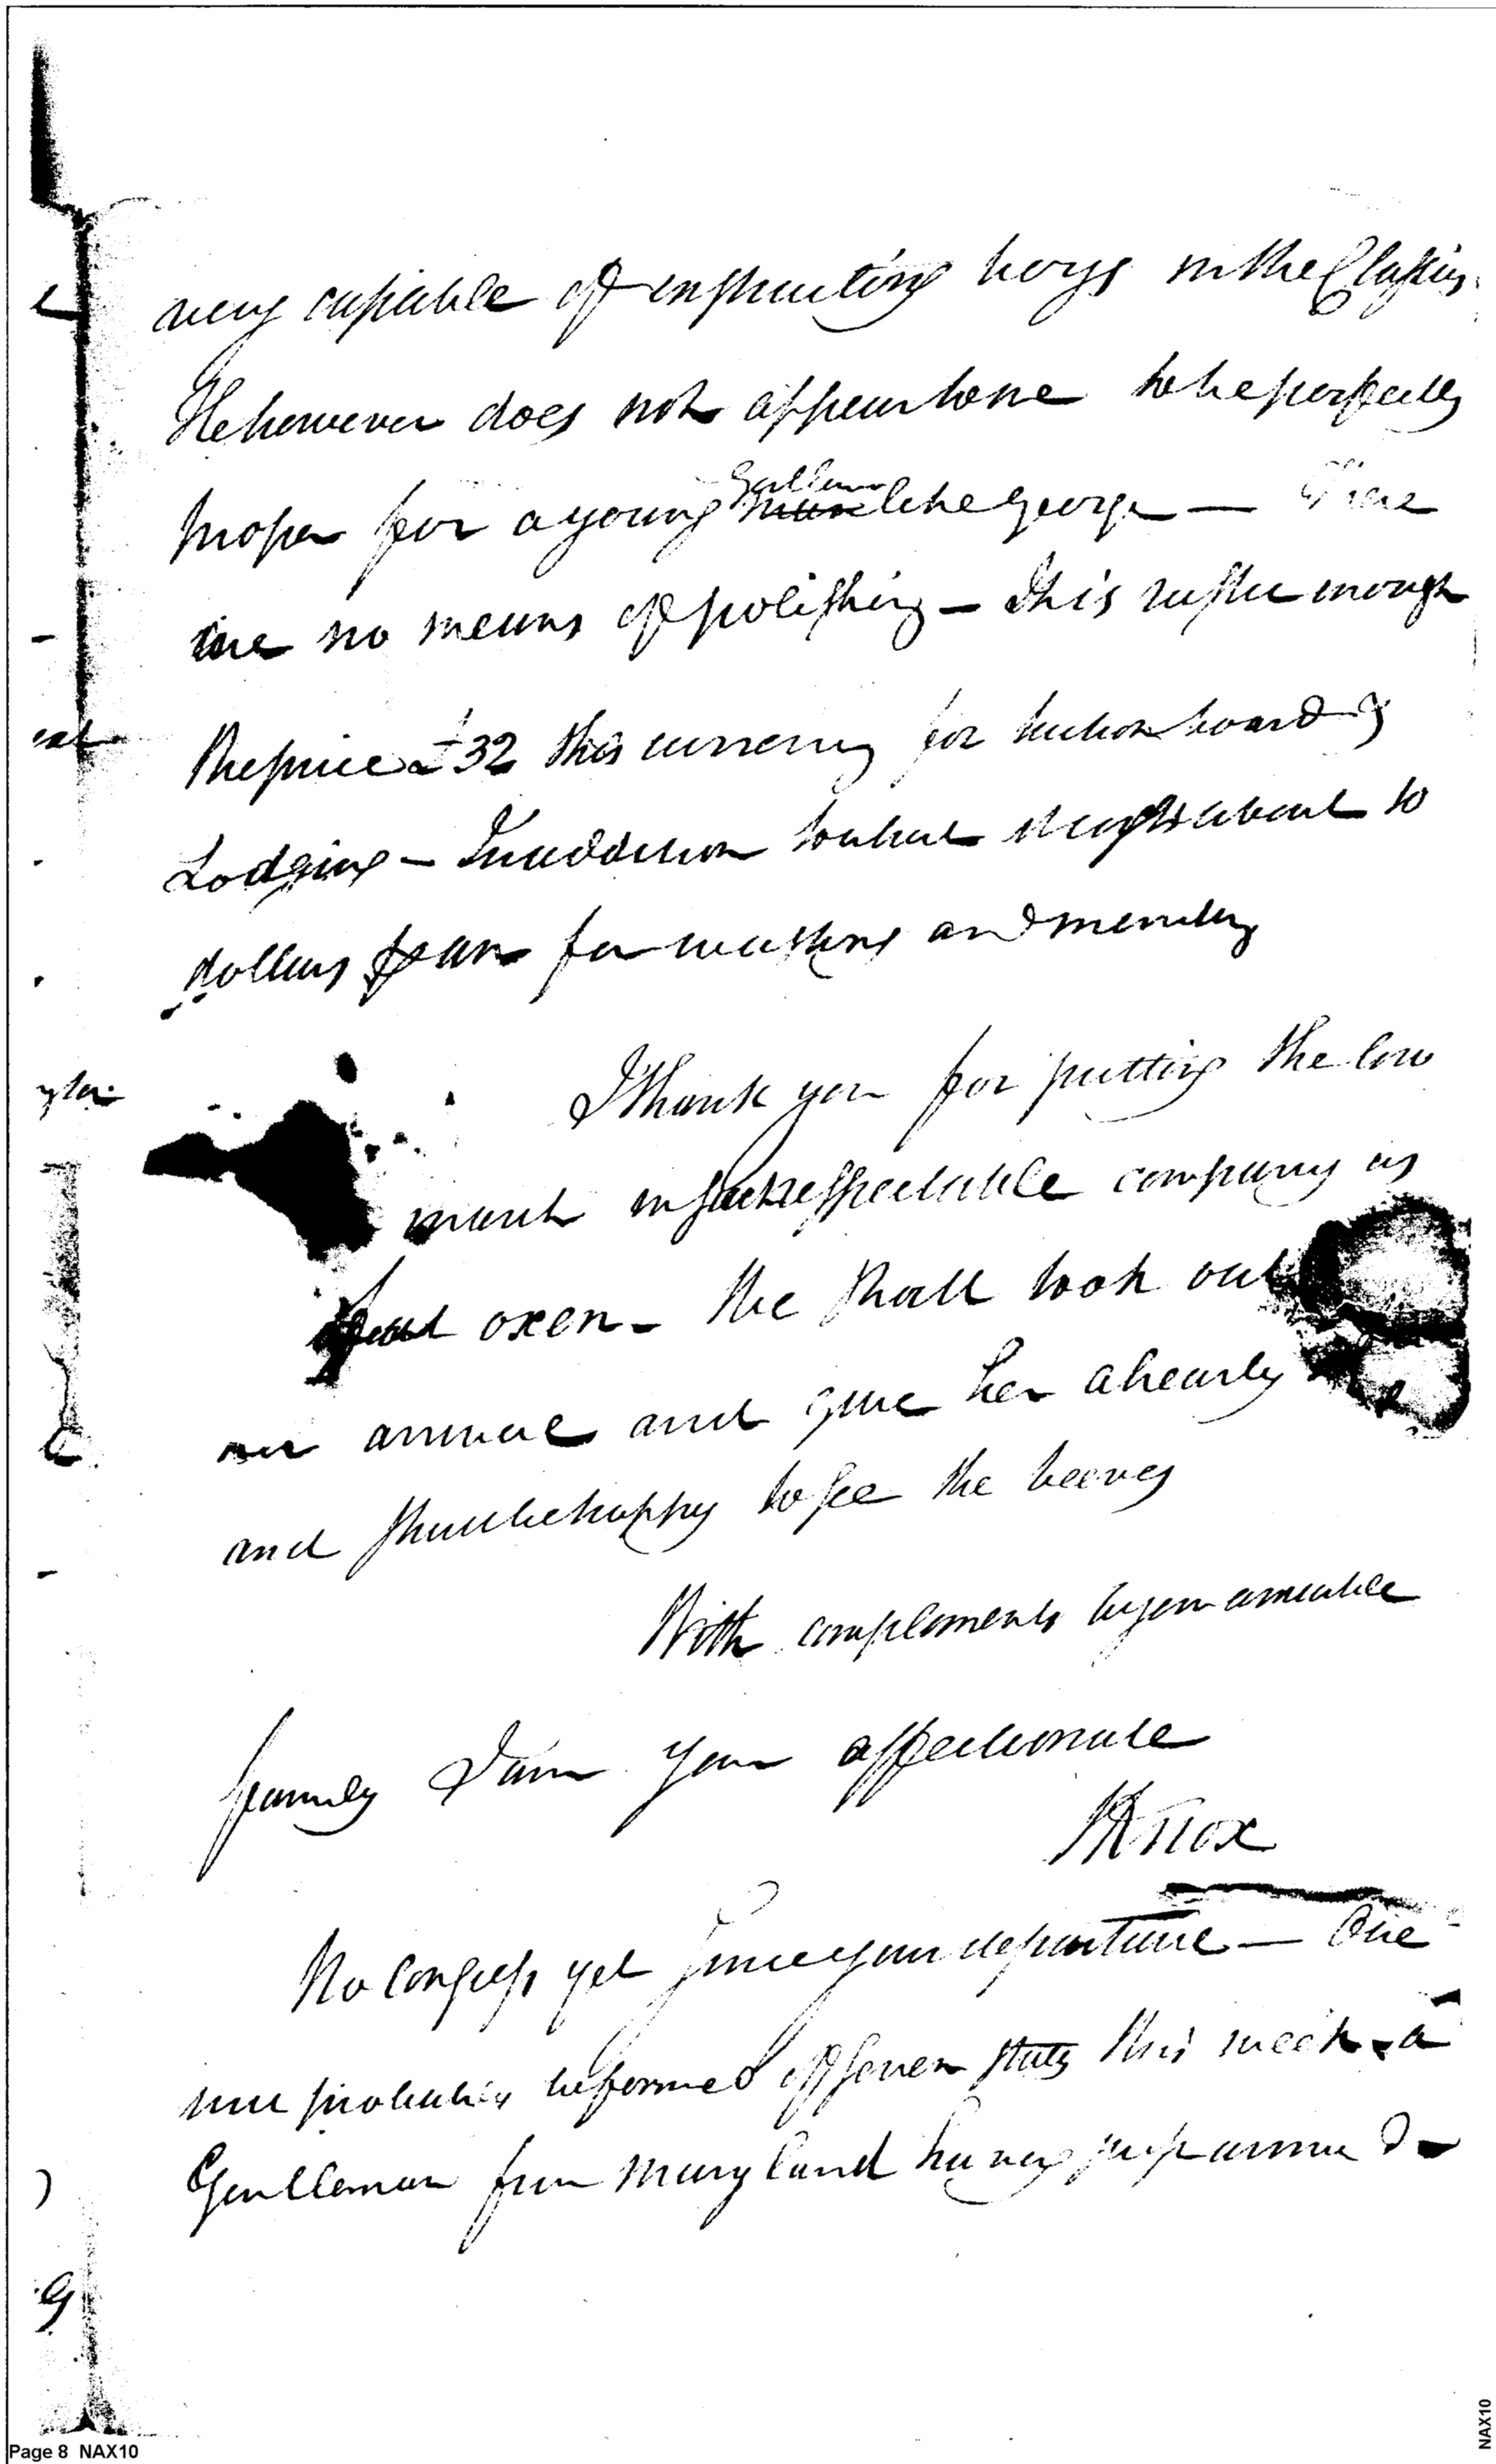 very capable of instructing boys in the Classics.
He however does not appear to me to be perfectly
proper for a young Gentleman like George — There
are no means of polishing — This is rustic enough
The price £32 this currency for tuition board &
Lodging — In addition to which about 10
dollars per an for washing and mending
I thank you for putting the low
in such respectable company as
fat oxen — We shall look out
our arrival and give her a hearty
and shall be happy to see the beeves
With compliments to your amiable
family I am your affectionate
HKnox
No Congress yet since your departure — One
will probably be formed of seven states this week — a
Gentleman from Maryland having just arrived —
e
eat
)
g
Page 8 NAX10
NAX10